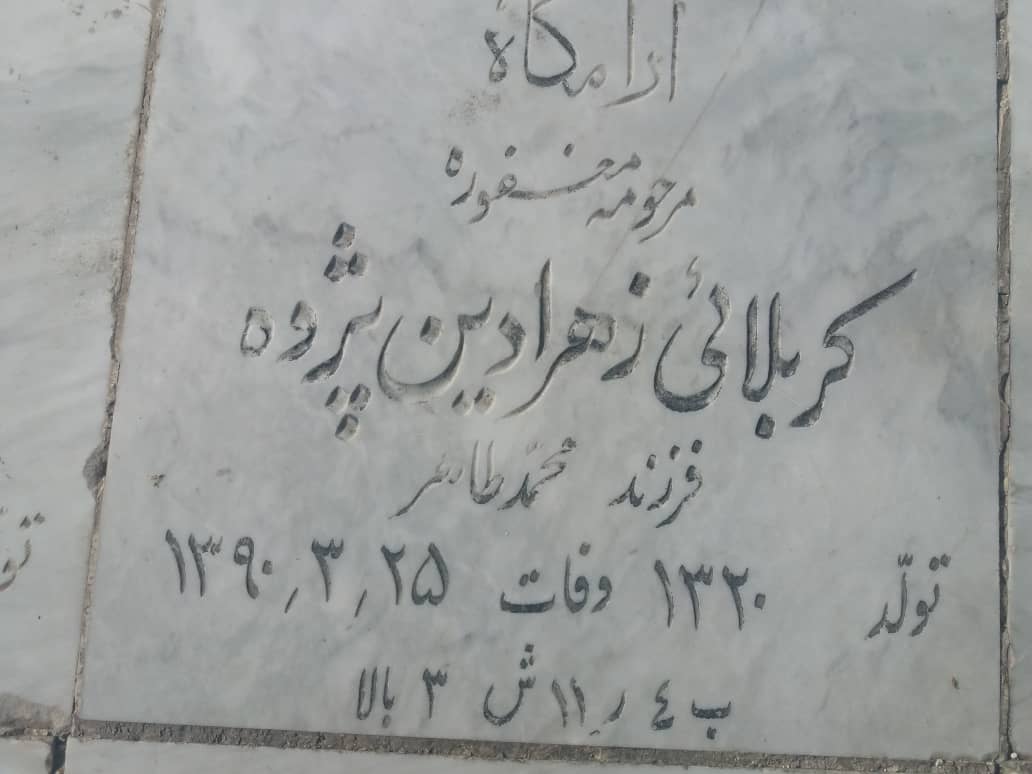 آرامگاه
مرحومه مغفوره
کربلائی زهرا دین پژوه
فرزند محمّد طاهر
تولّد ۱۳۲۰ وفات ۲۵٫۳٫۱۳۹۰
ب ٤ ر ۱۱ ش ۳ بالا
تو